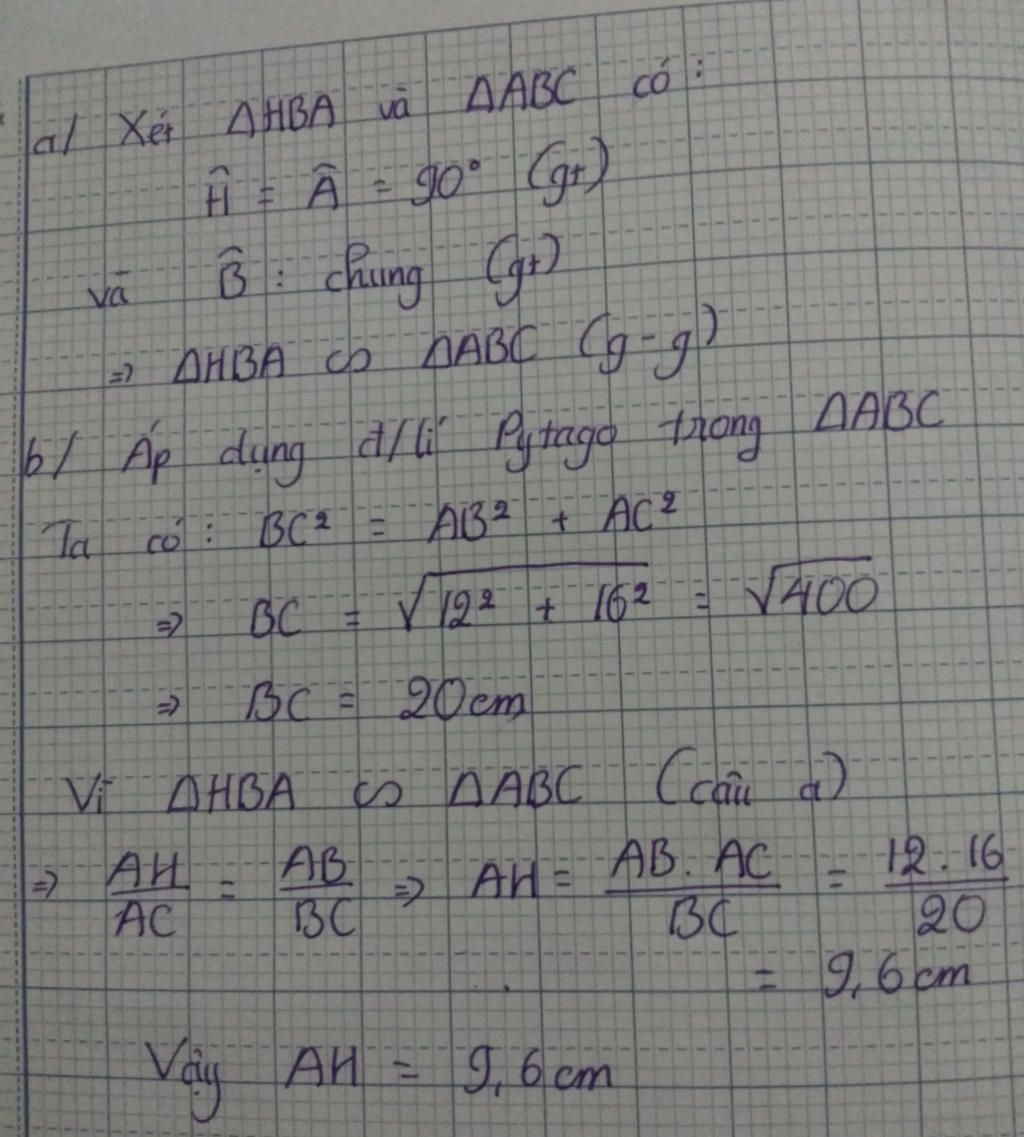 a/ Xét ΔHBA và ΔABC có:
Ĥ = Â = 90° (gt)
và B̂ : chung (gt)
⇒ ΔHBA ∽ ΔABC (g-g)
b/ Áp dụng đ/lí Pytago trong ΔABC
Ta có: BC² = AB² + AC²
⇒ BC = √(12² + 16²) = √400
⇒ BC = 20cm
Vì ΔHBA ∽ ΔABC (câu a)
⇒ AH/AC = AB/BC ⇒ AH = AB.AC/BC = 12.16/20
= 9,6cm
Vậy AH = 9,6cm